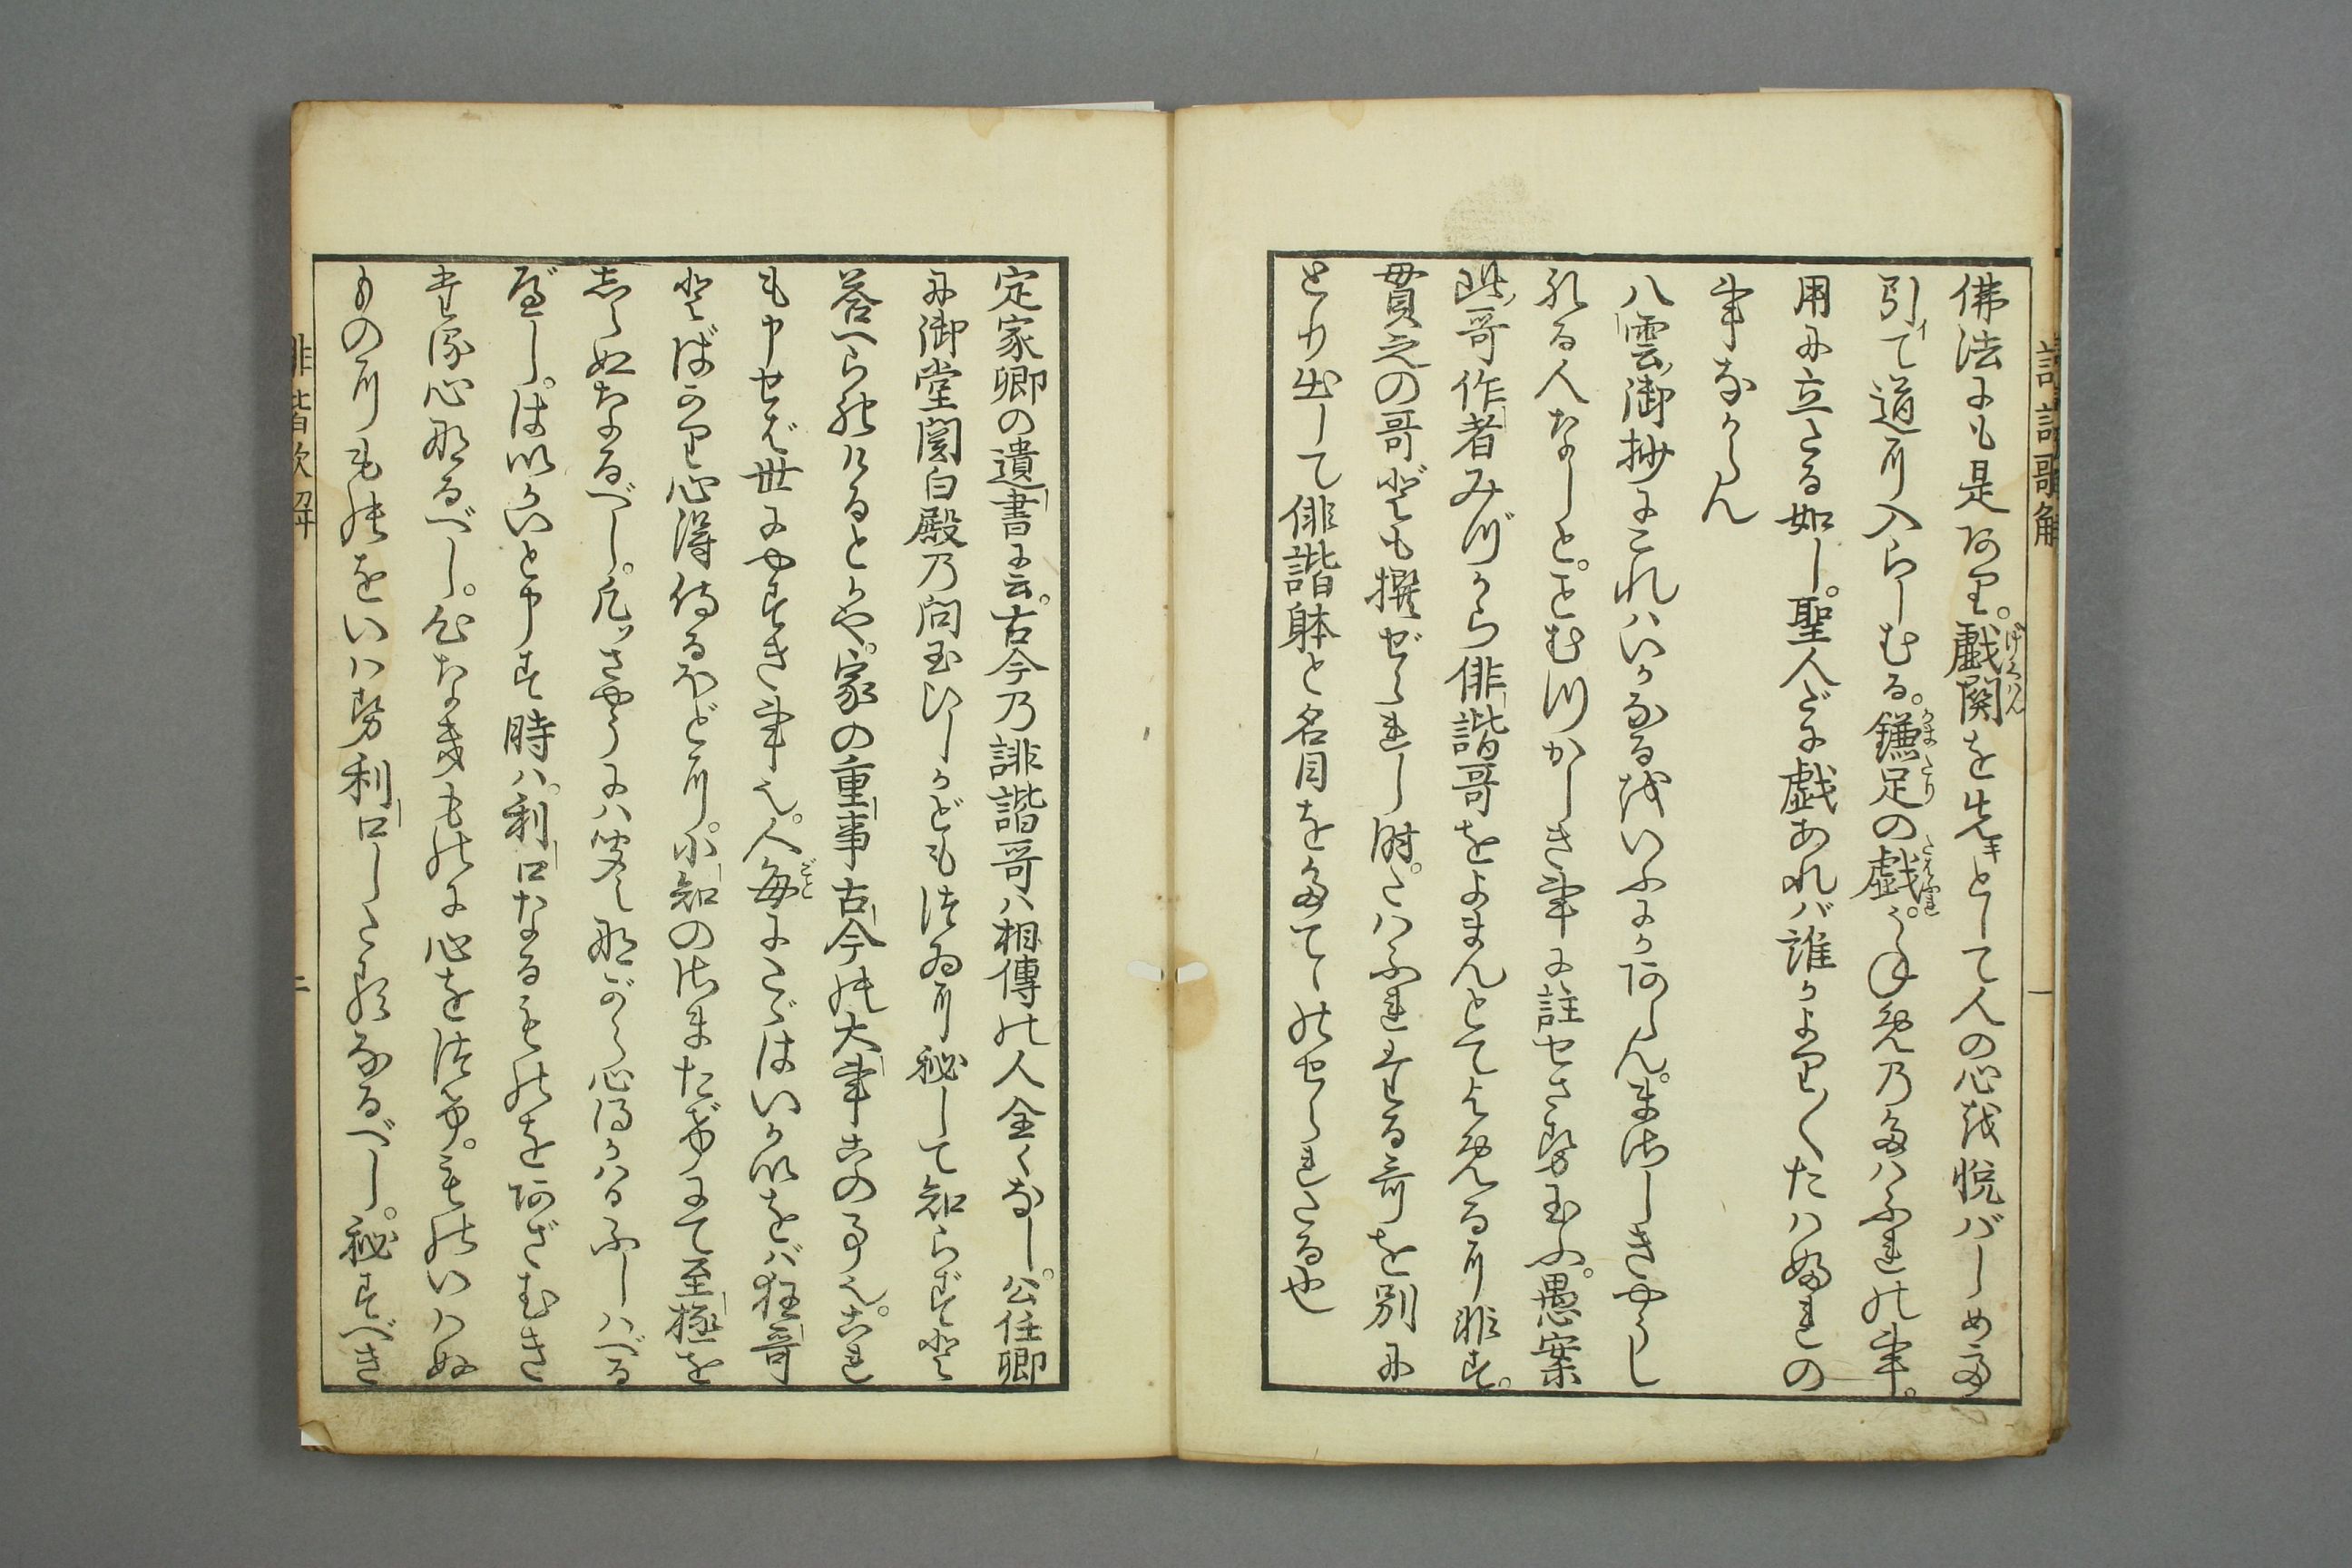 佛法にも是あり。戯関を先キとして人の心を悦バしめ
引イて道に入らしむる。鎌足の戯。の
用に立たる如し。聖人だに戯あれバ誰かより〳〵たハぶれの
事なからん
八雲御抄にこれハいかなるをいふにかあらん。まさしきやうし
れる人なしと。とむつかしき事に註せさせ玉ふ。愚案
此哥作者みづから俳諧哥をよまんとてよめるに非ず。
貫之の哥ども撰ぜられし時。たハふれたる哥を別に
とり出して俳諧躰と名目をたてのせられたる也
定家卿の遺書に云。古今乃誹諧哥ハ相傳の人全くなし。公任卿
に御堂関白殿乃問玉ひしかどもつゐに秘して知らずと
答へられけるとかや。家の重事古今の大事此の事也。これ
も申せば世にやすき事也。人毎にたゞはいかいをバ狂哥
とばかり心得侍るほどに。小知のはまたげにて至極を
しらぬなるべし。凡ソさやうにハ笑ひながら心得かハるふしハべる
べし。はいかいと申す時ハ。利口なるものをあざむき
たる心なるべし。心なきものに心をつけ。ものいハぬ
ものにものをいハせ利口したるなるべし。秘すべき
俳諧歌解
二
誹諧歌解
一